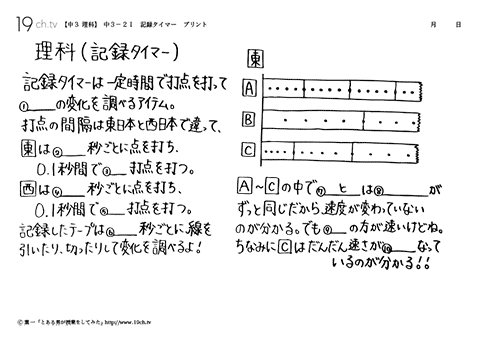 19ch.tv 【中3 理科】 中3-21 記録タイマー プリント
月 日
理科(記録タイマー)
記録タイマーは一定時間で打点を打って
①____の変化を調べるアイテム。
打点の間隔は東日本と西日本で違って、
東は②____秒ごとに点を打ち、
0.1秒間で③__打点を打つ。
西は④____秒ごとに点を打ち、
0.1秒間で⑤__打点を打つ。
記録したテープは⑥____秒ごとに、線を
引いたり、切ったりして変化を調べるよ!
東
A
B
C
A~Cの中で⑦__と__は⑧______が
ずっと同じだから、速度が変わっていない
のが分かる。でも⑨__の方が速いけどね。
ちなみにCはだんだん速さが⑩____なって
いるのが分かる!!
© 葉一「とある男が授業をしてみた」http://www.19ch.tv